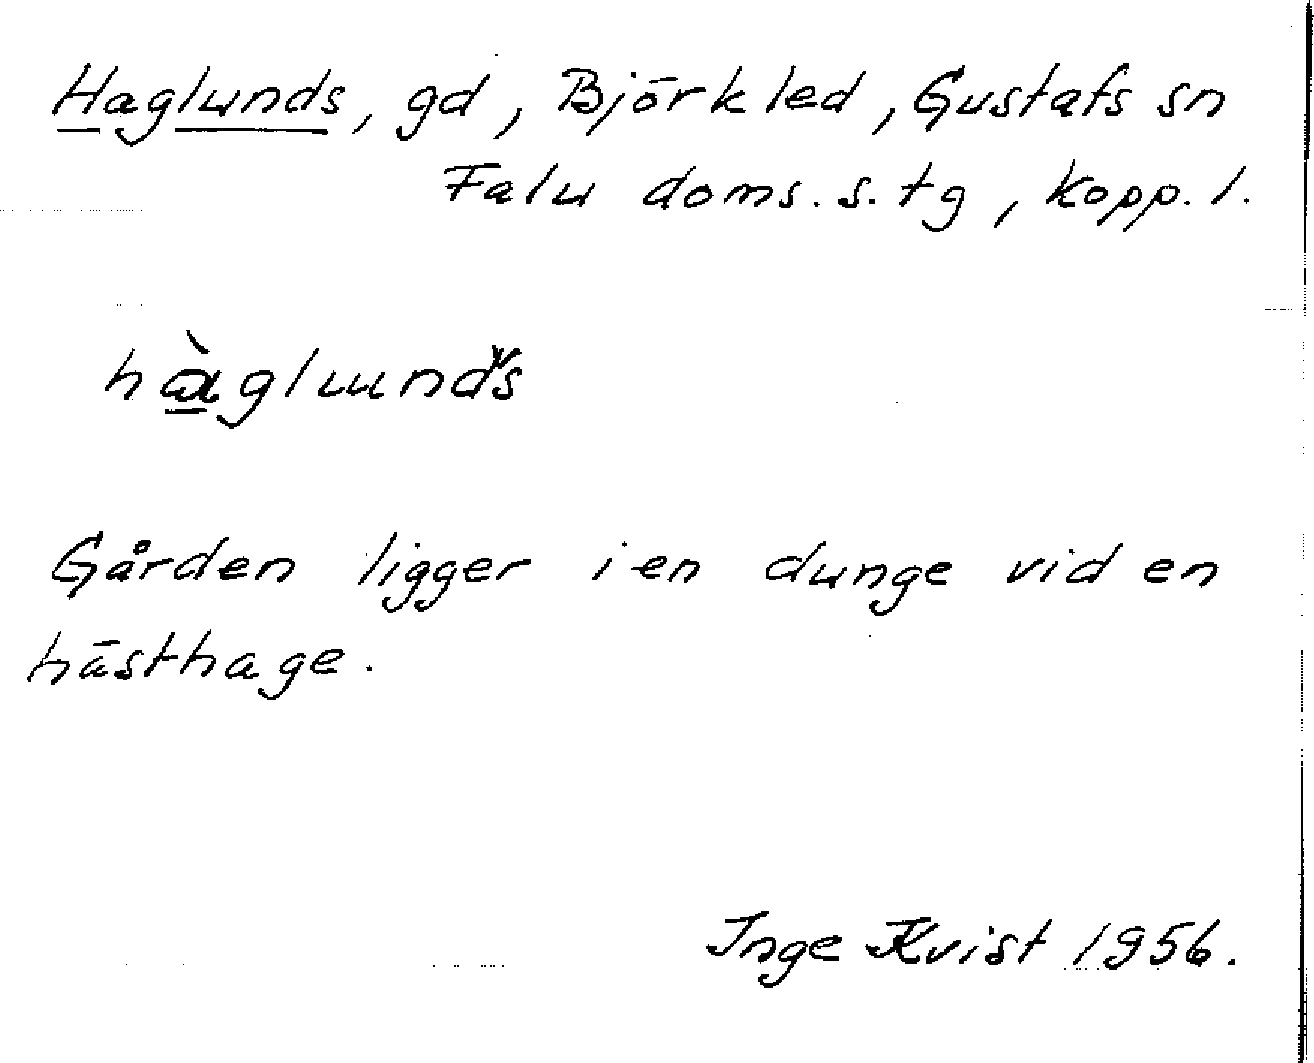 Haglunds, gd, Björkled, Gustafs sn
Falu doms. s. tg, Kopp. l.
hàglunds
Gården ligger i en dunge vid en
hästhage.
Inge Kvist 1956.